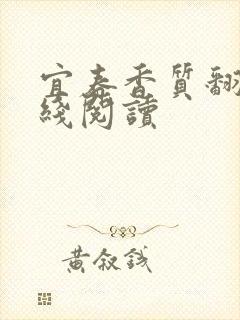 宜春香質翻
綫閱讀
黃叙錢